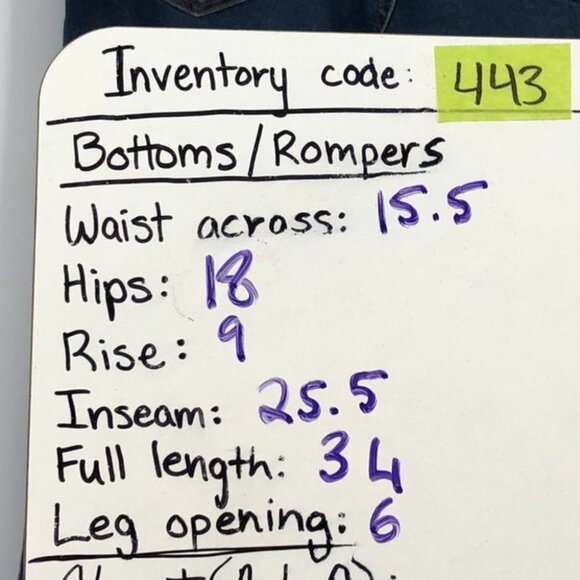 Inventory code: 443
Bottoms/Rompers
Waist across: 15.5
Hips: 18
Rise: 9
Inseam: 25.5
Full length: 34
Leg opening: 6